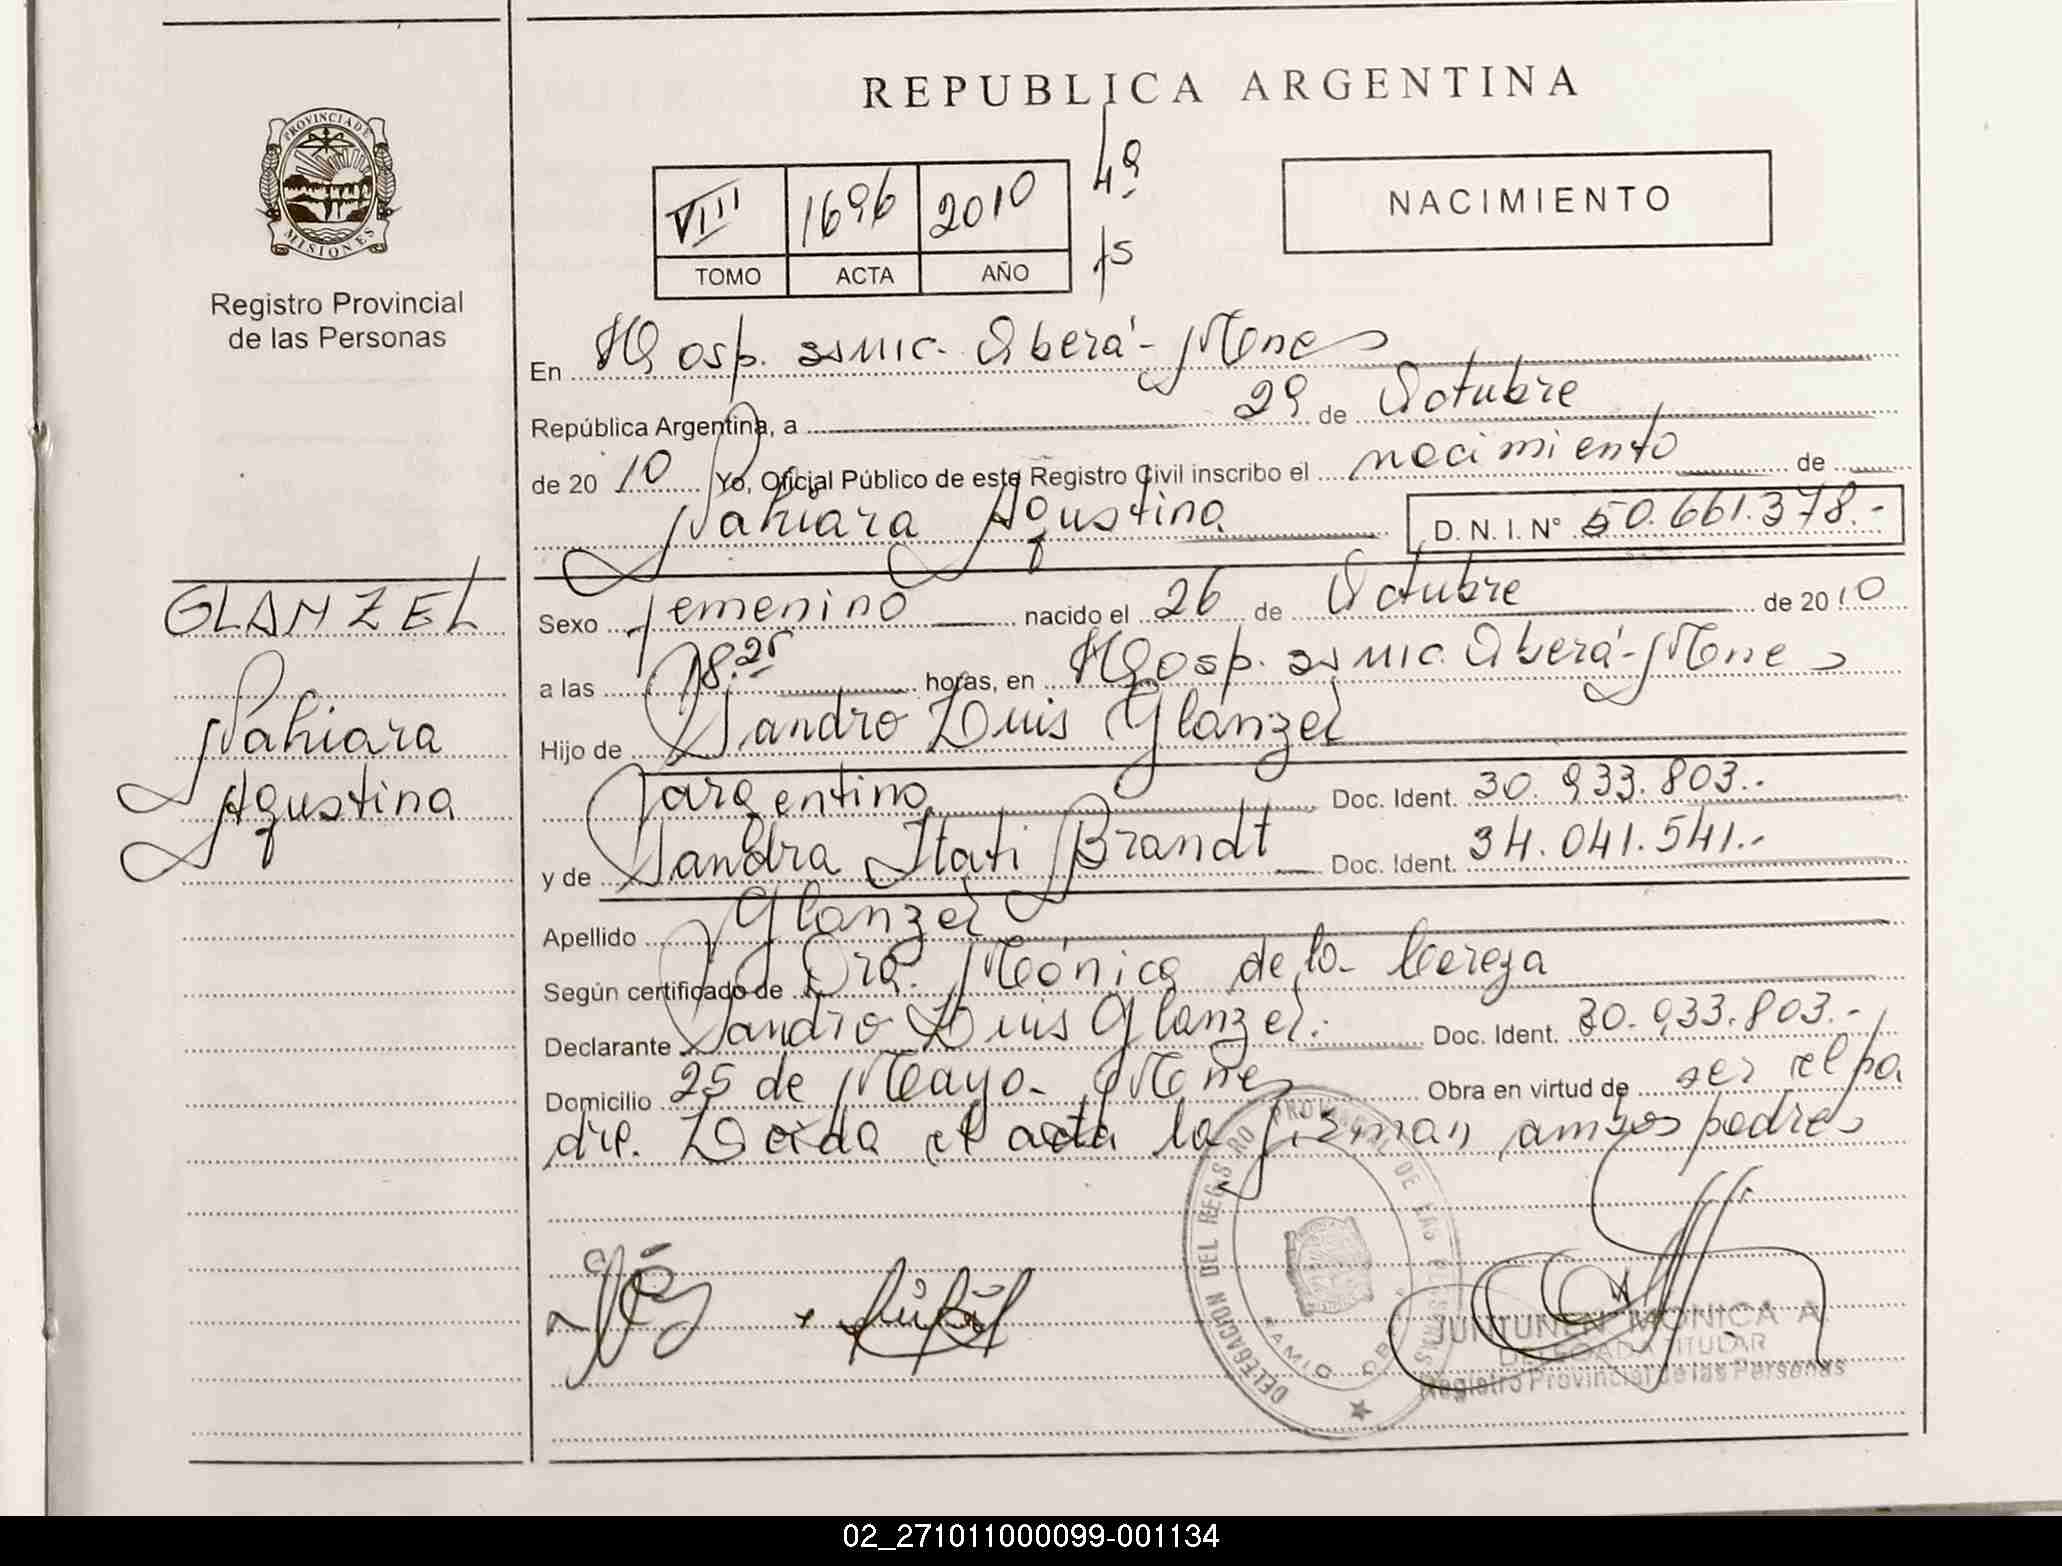 REPUBLICA ARGENTINA
PROVINCIA DE
MISIONES
Registro Provincial
de las Personas
VIII 1696 2010 49
TOMO ACTA AÑO 15
NACIMIENTO
En Hosp. Oberá- Mnes
República Argentina, a 29 de Octubre
de 2010 Yo, Oficial Público de este Registro Civil inscribo el nacimiento de
Nahiara Agustina D. N. I. N° 50.661.378.-
GLANZEL
Nahiara
Agustina
Sexo femenino nacido el 26 de Octubre de 2010
a las 18.25 horas, en Hosp. Oberá- Mnes
Hijo de Sandro Luis Glanzel
argentino Doc. Ident. 30.933.803.-
y de Sandra Itati Brandt Doc. Ident. 34.041.541.-
Apellido Glanzel
Según certificado de Dra. Mónica de la
Declarante Sandro Luis Glanzel. Doc. Ident. 30.933.803.-
Domicilio 25 de Mayo- Mnes Obra en virtud de ser el pa
dre. Leida el acta la firman ambos padres
DELEGACION DEL REGISTRO PROVINCIAL DE LAS PERSONAS
JUNTUNEN MONICA A.
DELEGADA TITULAR
Registro Provincial de las Personas
02_271011000099-001134